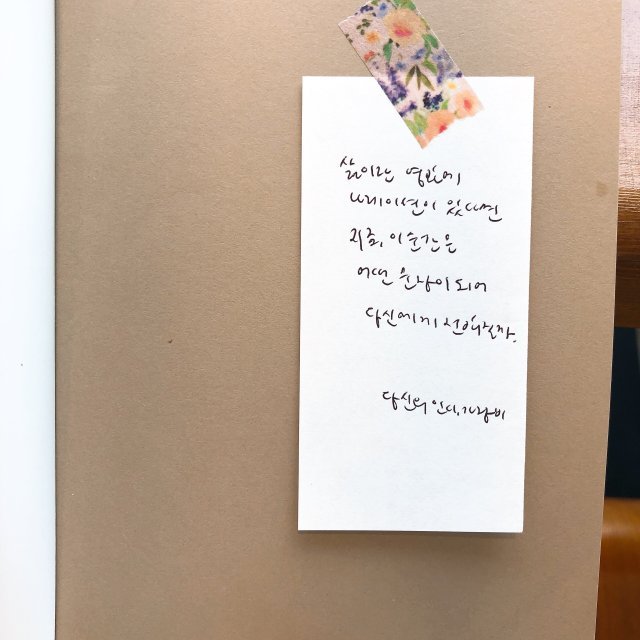 삶이란 영화에
나레이션이 있다면
지금, 이 순간은
어떤 문장이 되어
당신에게 전해질까.
당신의